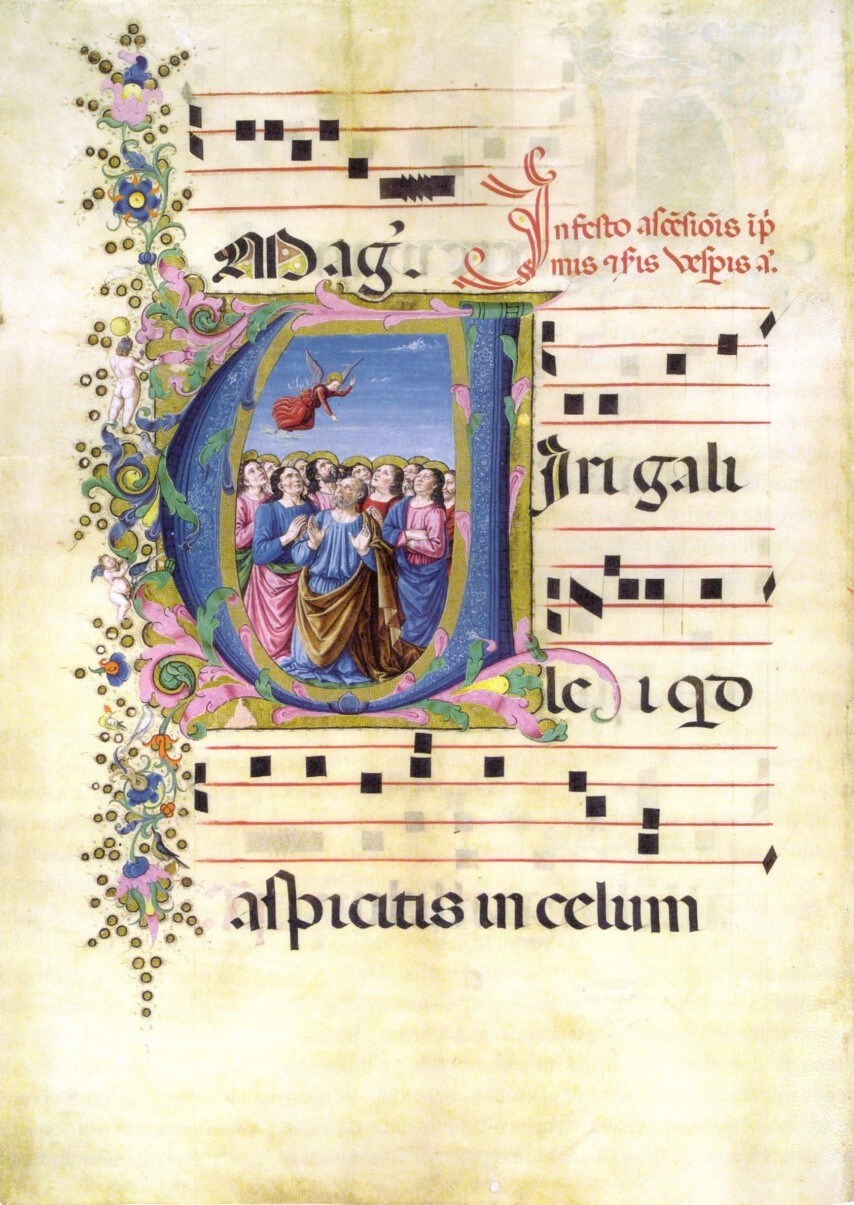 Mag̃.
In feſto aſcēſiōis īp̄
mis ⁊ ſis Veſpis a.
VIri gali
lei qd
aſpicitis in celum